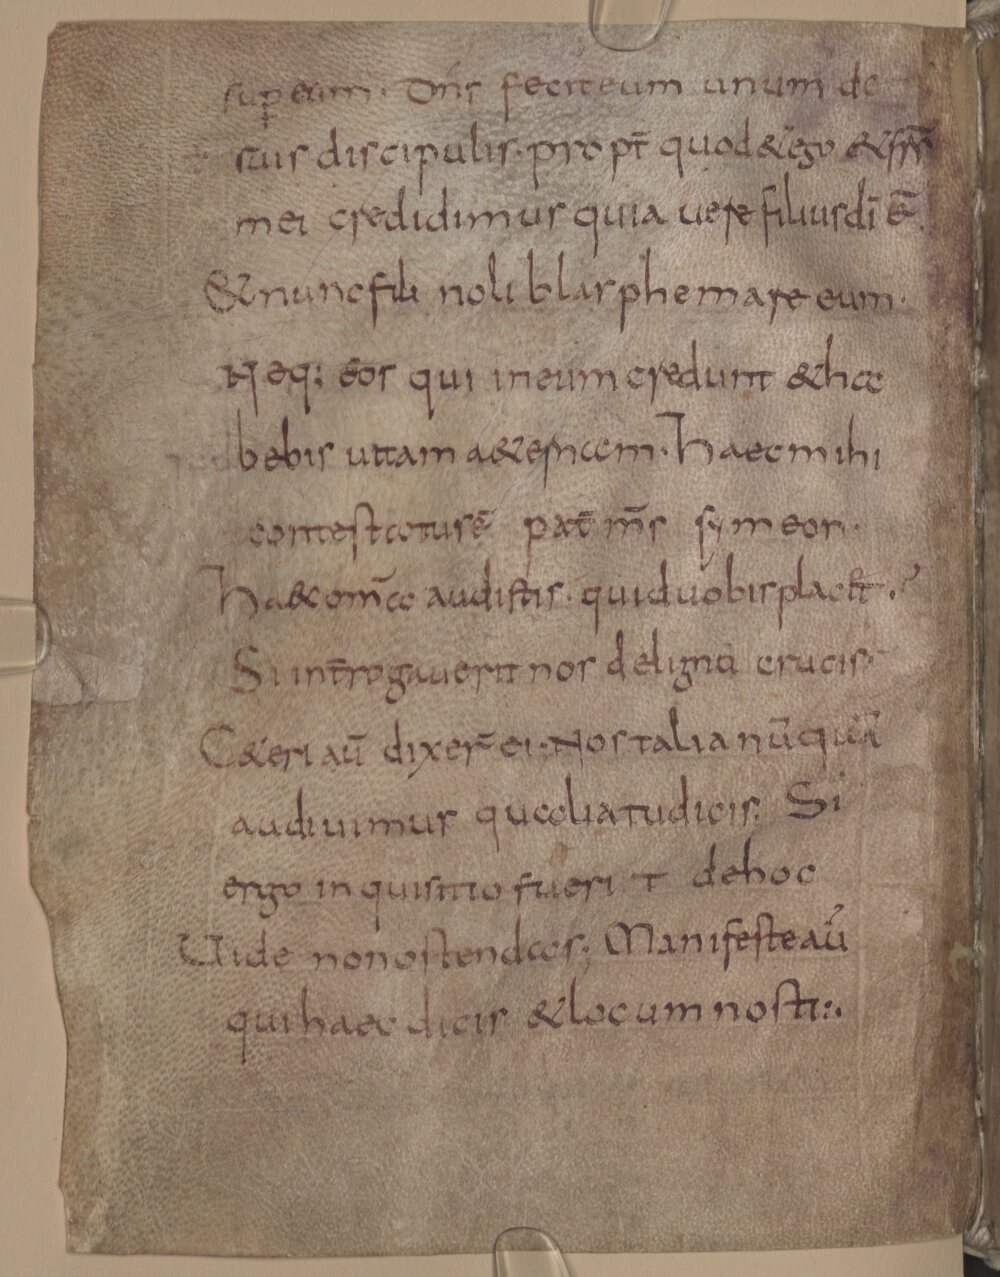 sup eum · Dn̄s feciteum unum de
suis discipulis · propt̄ quod & ego & frs̄
mei credidimus quia uere filiusdī ē.
& nunc fili noli blasphemare eum ·
Neq; eos qui ineum credunt & ha
bebis uitam a&ernam · Haec mihi
contestatus ē pat̄ m̄s symeon ·
Ha& om̄a audistis · quid uobis plac&
Si int̄rogauerit nos de ligno crucis
C&eri aū dixer̄ ei · Nos talia nūquā
audiuimus qualia tu dicis. Si
ergo inquisitio fueri t de hoc
Uide non ostendas; Manifeste aū
qui haec dicis & locum nosti :.